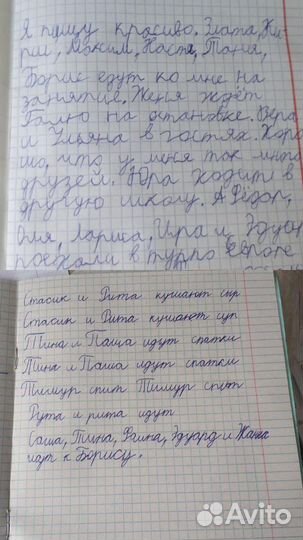 Я пишу красиво. Злата, Ки-
рил, Максим, Настя, Таня,
Борис едут ко мне на
занятие. Женя ждёт
Галю на остановке. Вера
и Ульяна в гостях. Хоро
шо, что у меня так много
друзей. Юра ходит в
другую школу. А Фёдор,
Оля, Лариса, Ира и Эдуар
поехали в турпо Европе
Стасик и Рита кушают сыр
Стасик и Рита кушают суп
Тина и Паша идут спатки
Тина и Паша идут спатки
Тимур спит Тимур спит
Рута и рита идут
Саша, Тина, Фаина, Эдуард и Жанна
идут к Борису.
Avito